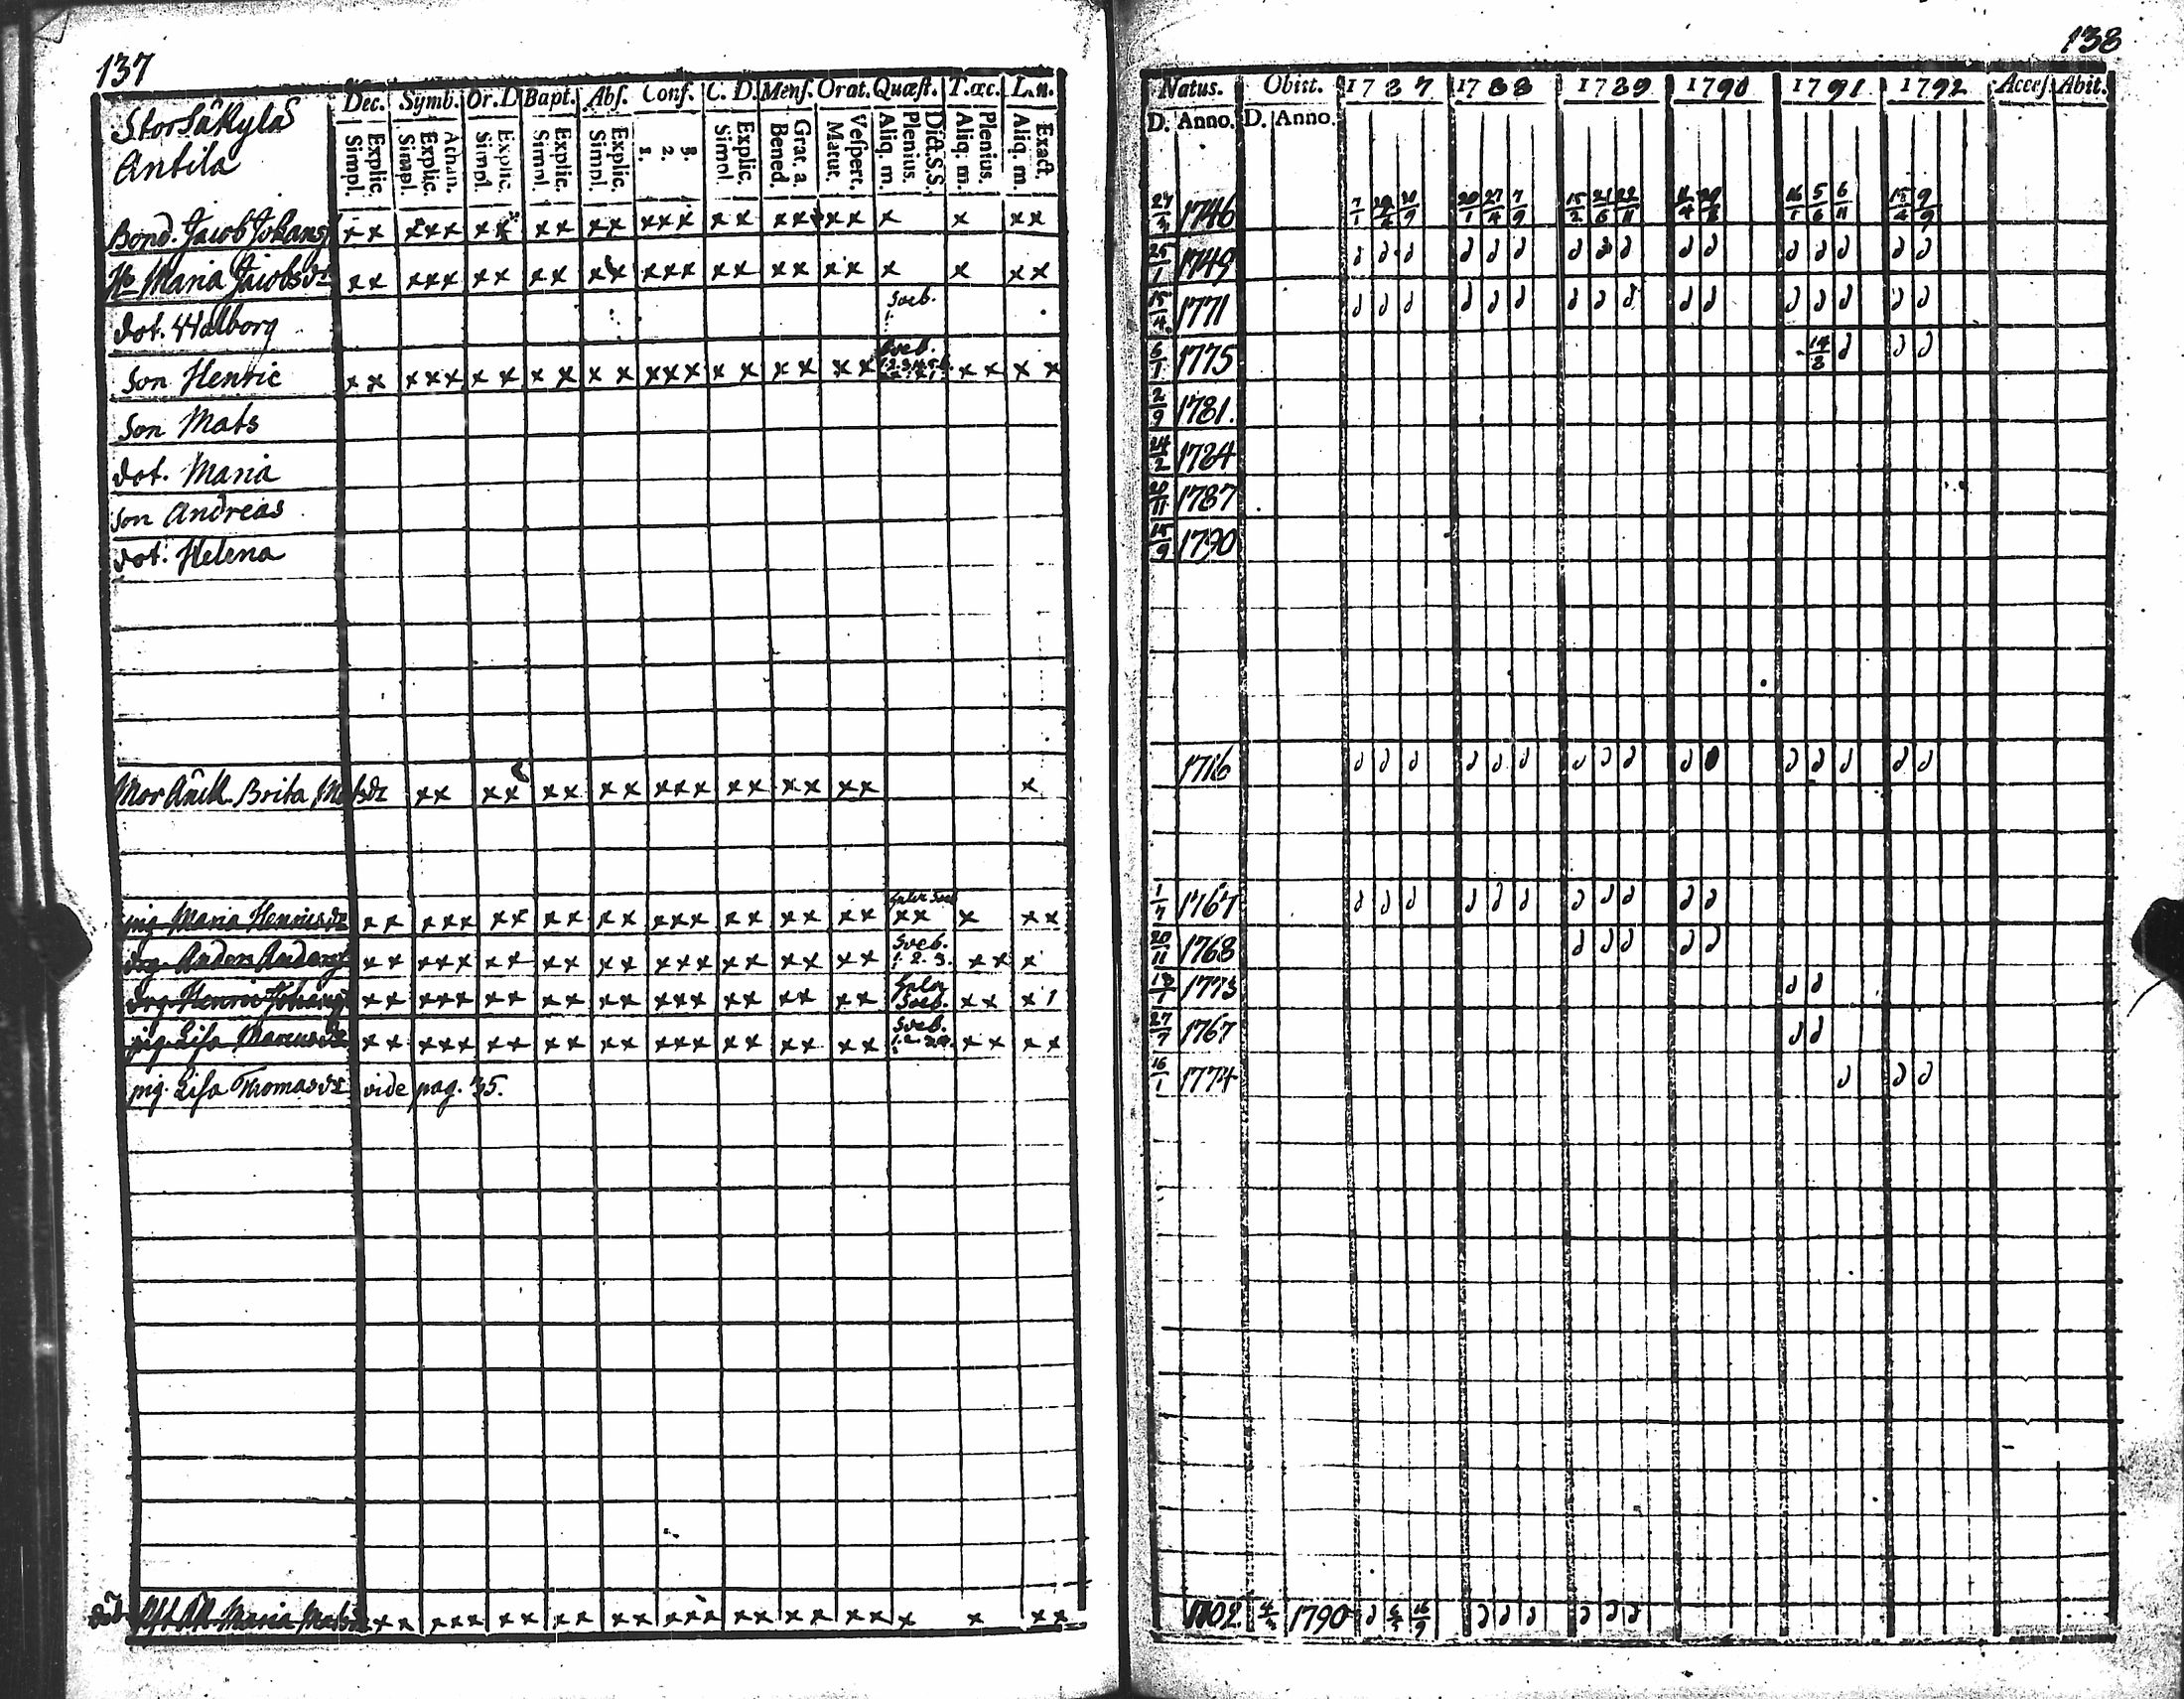 137
StorSäkylä
Antila
Dec. Symb. Or. D Bapt. Abs. Conf. C. D. Mens. Orat. Quæst. T. œc. L. n.
Simpl. Explic. Simpl. Explic. Athan. Simpl. Explic. Simpl. Explic. Simpl. Explic. 1. 2. 3. Simpl. Explic. Bened. Grat. a. Matut. Vespert. Aliq. m. Plenius. Dict. S. S. Aliq. m. Plenius. Aliq. m. Exact.
Bond. Jacob Johans x x x x x x x x x x x x x x x x x x x x x x x x x
Hu Maria Jacobsdr x x x x x x x x x x x x x x x x x x x x x x x x x
dot. Walborg Sveb.
Son Henric x x x x x x x x x x x x x x x x x x x x x Sveb. x x x x
Son Mats
dot. Maria
Son Andreas
dot. Helena
Mor Änk. Brita Matsdr x x x x x x x x x x x x x x x x x x
pig Maria Henricsdr x x x x x x x x x x x x x x x x x x x x x x x x x x
drg Anders Anders x x x x x x x x x x x x x x x x x x x x x Sveb. 1. 2. 3. x x x
drg Henric Johans x x x x x x x x x x x x x x x x x x x x x Sveb. x x x 1
pig. Lisa Marcusdr x x x x x x x x x x x x x x x x x x x x x Sveb. x x x x
pig. Lisa Thomasdr vide pag. 35.
Maria Matsdr x x x x x x x x x x x x x x x x x x x x x x x x x
138
Natus. Obiit. 1787 1788 1789 1790 1791 1792 Acces. Abit.
D. Anno. D. Anno.
1746 7/1 20/1 27/4 7/9 15/2 21/6 22/11 16/1 5/6 6/11 15/4 9/9
25/1 1749
15/4 1771
6/1 1775 14/8
2/9 1781.
24/2 1784
20/11 1787
15/9 1790
1716
1/7 1767
20/11 1768
13/1 1773
27/7 1767
16/1 1774
1702. 1790 16/9